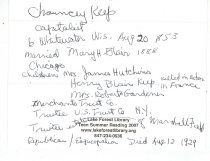 Chauncey Keep
capitalist
b Whitewater Wis. Aug 20 1853
married Mary H Blair 1888
Chicago
children: Mrs James Hutchins
Henry Blair Keep killed in action in France
Mrs. Robert Gardener
Merchants Trust Co
Trustee U.S. Trust Co N.Y.
Trustee of Marshall Field
(C) Lake Forest Library
Teen Summer Reading 2007
www.lakeforestlibrary.org
847-234-0636
Republican Episcopalian Died Aug 12 1929